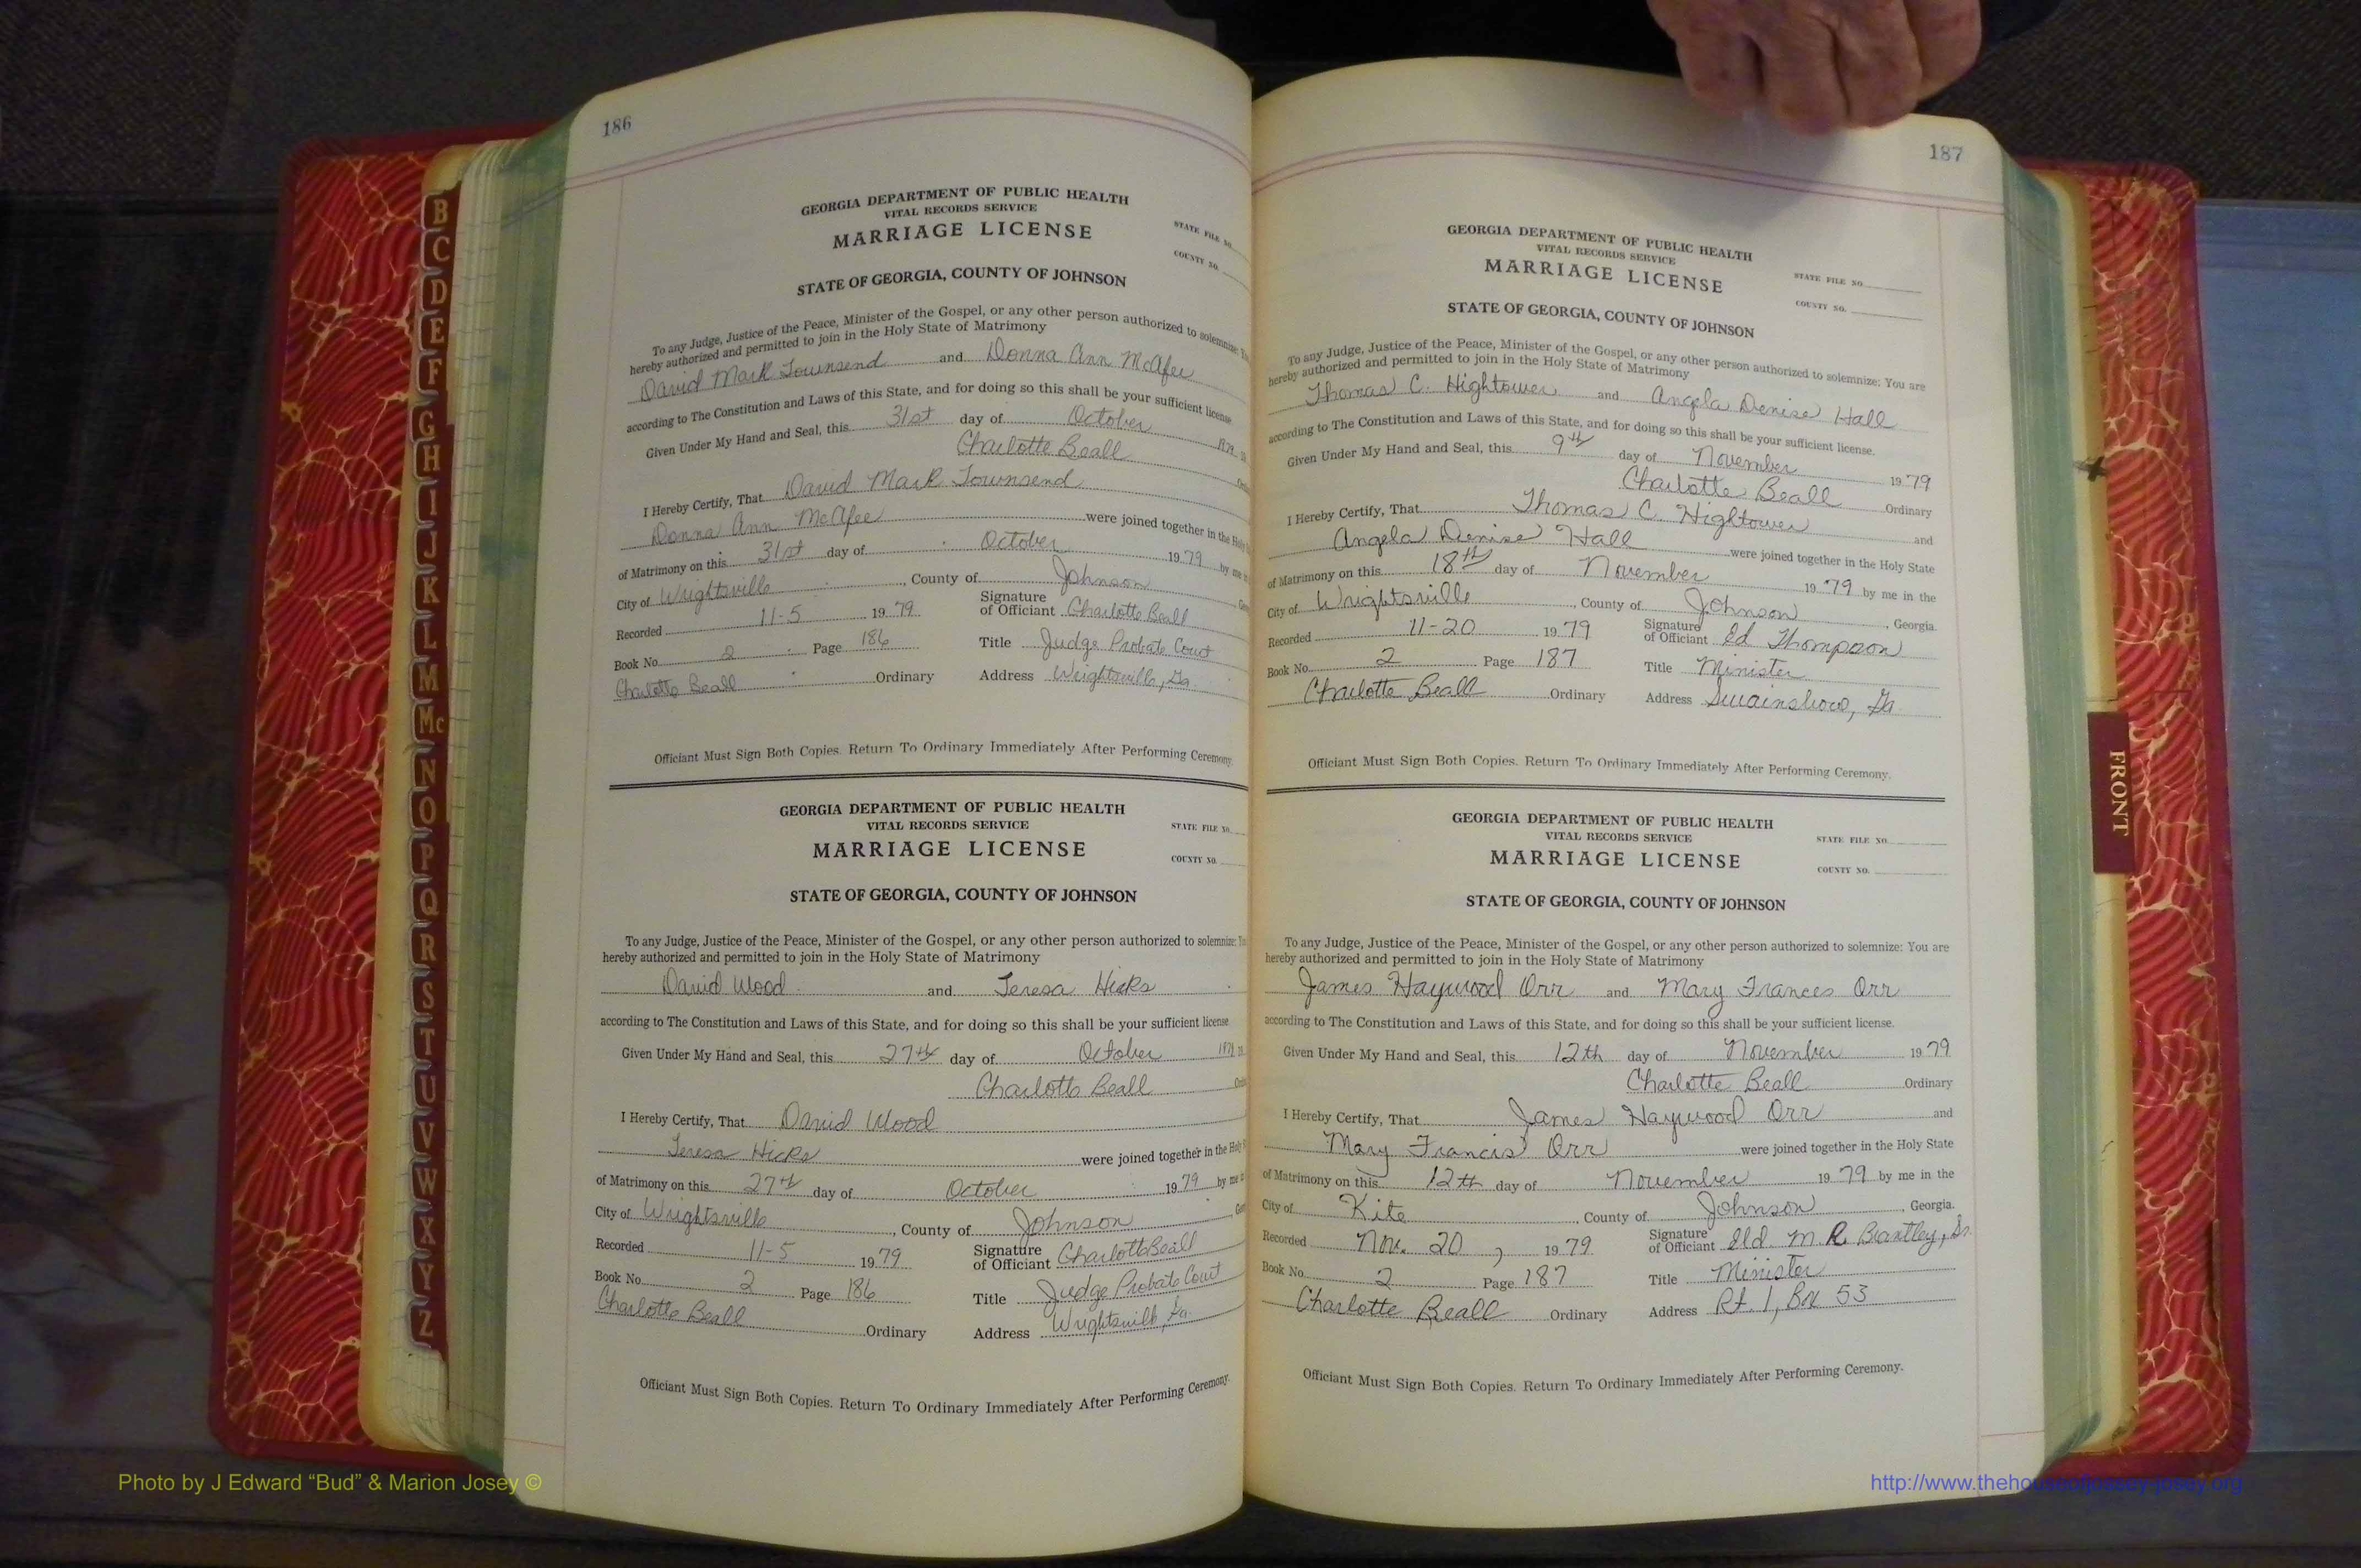 186
GEORGIA DEPARTMENT OF PUBLIC HEALTH
VITAL RECORDS SERVICE
MARRIAGE LICENSE
STATE FILE NO.
COUNTY NO.
STATE OF GEORGIA, COUNTY OF JOHNSON
To any Judge, Justice of the Peace, Minister of the Gospel, or any other person authorized to solemnize:
hereby authorized and permitted to join in the Holy State of Matrimony
David Mark Townsend and Donna Ann McAfee
according to The Constitution and Laws of this State, and for doing so this shall be your sufficient license
Given Under My Hand and Seal, this 31st day of October 1979
Charlotte Beall
I Hereby Certify, That David Mark Townsend
Donna Ann McAfee were joined together in the Holy
of Matrimony on this 31st day of October 19 79 by me
City of Wrightsville, County of Johnson
Recorded 11-5 19 79 Signature of Officiant Charlotte Beall
Book No. 2 Page 186 Title Judge Probate Court
Charlotte Beall Ordinary Address Wrightsville, Ga.
Officiant Must Sign Both Copies. Return To Ordinary Immediately After Performing Ceremony.
GEORGIA DEPARTMENT OF PUBLIC HEALTH
VITAL RECORDS SERVICE
MARRIAGE LICENSE
STATE FILE NO.
COUNTY NO.
STATE OF GEORGIA, COUNTY OF JOHNSON
To any Judge, Justice of the Peace, Minister of the Gospel, or any other person authorized to solemnize:
hereby authorized and permitted to join in the Holy State of Matrimony
David Wood and Teresa Hicks
according to The Constitution and Laws of this State, and for doing so this shall be your sufficient license
Given Under My Hand and Seal, this 27th day of October 1979
Charlotte Beall
I Hereby Certify, That David Wood
Teresa Hicks were joined together in the Holy
of Matrimony on this 27th day of October 19 79 by me
City of Wrightsville, County of Johnson
Recorded 11-5 19 79 Signature of Officiant Charlotte Beall
Book No. 2 Page 186 Title Judge Probate Court
Charlotte Beall Ordinary Address Wrightsville, Ga.
Officiant Must Sign Both Copies. Return To Ordinary Immediately After Performing Ceremony.
187
GEORGIA DEPARTMENT OF PUBLIC HEALTH
VITAL RECORDS SERVICE
MARRIAGE LICENSE
STATE FILE NO.
COUNTY NO.
STATE OF GEORGIA, COUNTY OF JOHNSON
To any Judge, Justice of the Peace, Minister of the Gospel, or any other person authorized to solemnize: You are
hereby authorized and permitted to join in the Holy State of Matrimony
Thomas C. Hightower and Angela Denise Hall
according to The Constitution and Laws of this State, and for doing so this shall be your sufficient license.
Given Under My Hand and Seal, this 9th day of November 19 79
Charlotte Beall Ordinary
I Hereby Certify, That Thomas C. Hightower and
Angela Denise Hall were joined together in the Holy State
of Matrimony on this 18th day of November 19 79 by me in the
City of Wrightsville, County of Johnson, Georgia.
Recorded 11-20 19 79 Signature of Officiant Ed Thompson
Book No. 2 Page 187 Title Minister
Charlotte Beall Ordinary Address Swainsboro, Ga.
Officiant Must Sign Both Copies. Return To Ordinary Immediately After Performing Ceremony.
GEORGIA DEPARTMENT OF PUBLIC HEALTH
VITAL RECORDS SERVICE
MARRIAGE LICENSE
STATE FILE NO.
COUNTY NO.
STATE OF GEORGIA, COUNTY OF JOHNSON
To any Judge, Justice of the Peace, Minister of the Gospel, or any other person authorized to solemnize: You are
hereby authorized and permitted to join in the Holy State of Matrimony
James Haywood Orr and Mary Frances Orr
according to The Constitution and Laws of this State, and for doing so this shall be your sufficient license.
Given Under My Hand and Seal, this 12th day of November 19 79
Charlotte Beall Ordinary
I Hereby Certify, That James Haywood Orr and
Mary Francis Orr were joined together in the Holy State
of Matrimony on this 12th day of November 19 79 by me in the
City of Kite, County of Johnson, Georgia.
Recorded Nov. 20, 19 79 Signature of Officiant Eld. M. R. Brantley, Sr.
Book No. 2 Page 187 Title Minister
Charlotte Beall Ordinary Address Rt. 1, Box 53
Officiant Must Sign Both Copies. Return To Ordinary Immediately After Performing Ceremony.
B
C
D
E
F
G
H
I
J
K
L
M
Mc
N
O
P
Q
R
S
T
U
V
W
X
Y
Z
FRONT
Photo by J Edward “Bud” & Marion Josey ©
http://www.thehouseofjossey-josey.org